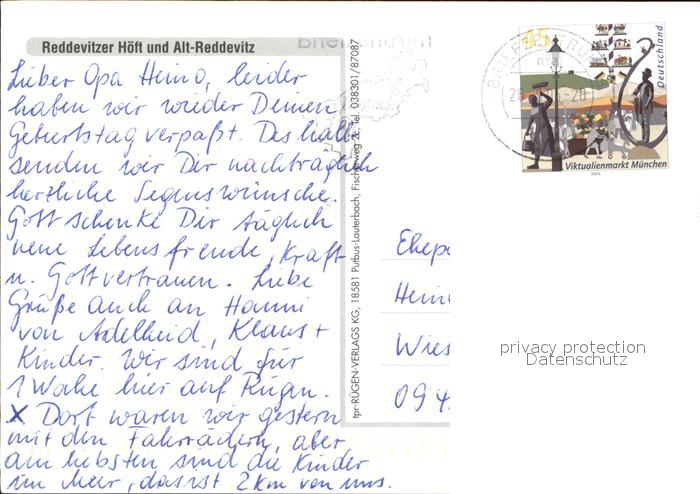 Reddevitzer Höft und Alt-Reddevitz
Lieber Opa Heino, leider
haben wir wieder Deinen
Geburtstag verpaßt. Deshalb
senden wir Dir nachträglich
herzliche Segenswünsche.
Gott schenke Dir täglich
neue Lebensfreude, Kraft
u. Gottvertrauen. Liebe
Grüße auch an Hanni
von Adelheid, Klaus +
Kinder. Wir sind für
1 Woche hier auf Rügen.
X Dort waren wir gestern
mit den Fahrrädern, aber
am liebsten sind die Kinder
im Meer, das ist 2 km von uns.
tpr-RÜGEN-VERLAGS KG, 18581 Putbus-Lauterbach, Fischerweg 2c, Tel. 038301/87087
Briefzentrum
BRIEFZENTRUM
45
Deutschland
Viktualienmarkt München
2003
Ehep
Hein
Wies
094
privacy protection
Datenschutz